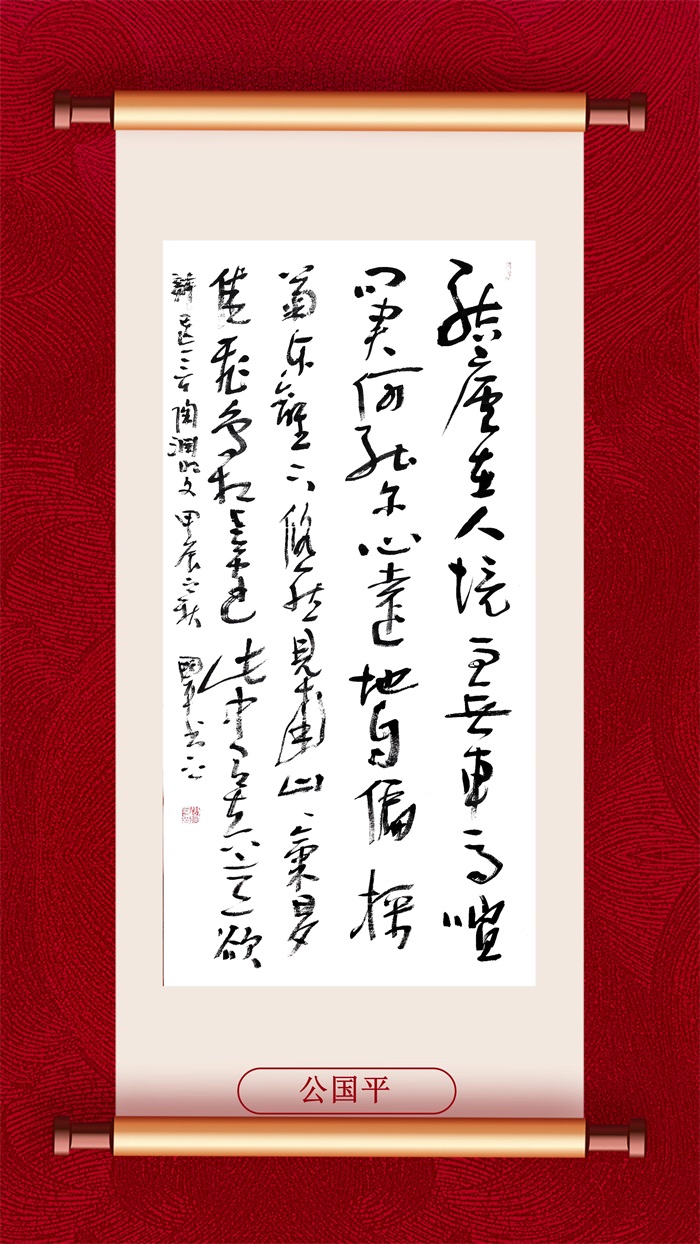 结庐在人境而无车马喧
问君何能尔心远地自偏採
菊东篱下悠然见南山山气日夕
佳飞鸟相与还此中有真意欲
辩已忘言陶渊明文甲辰之秋国平书
公国平